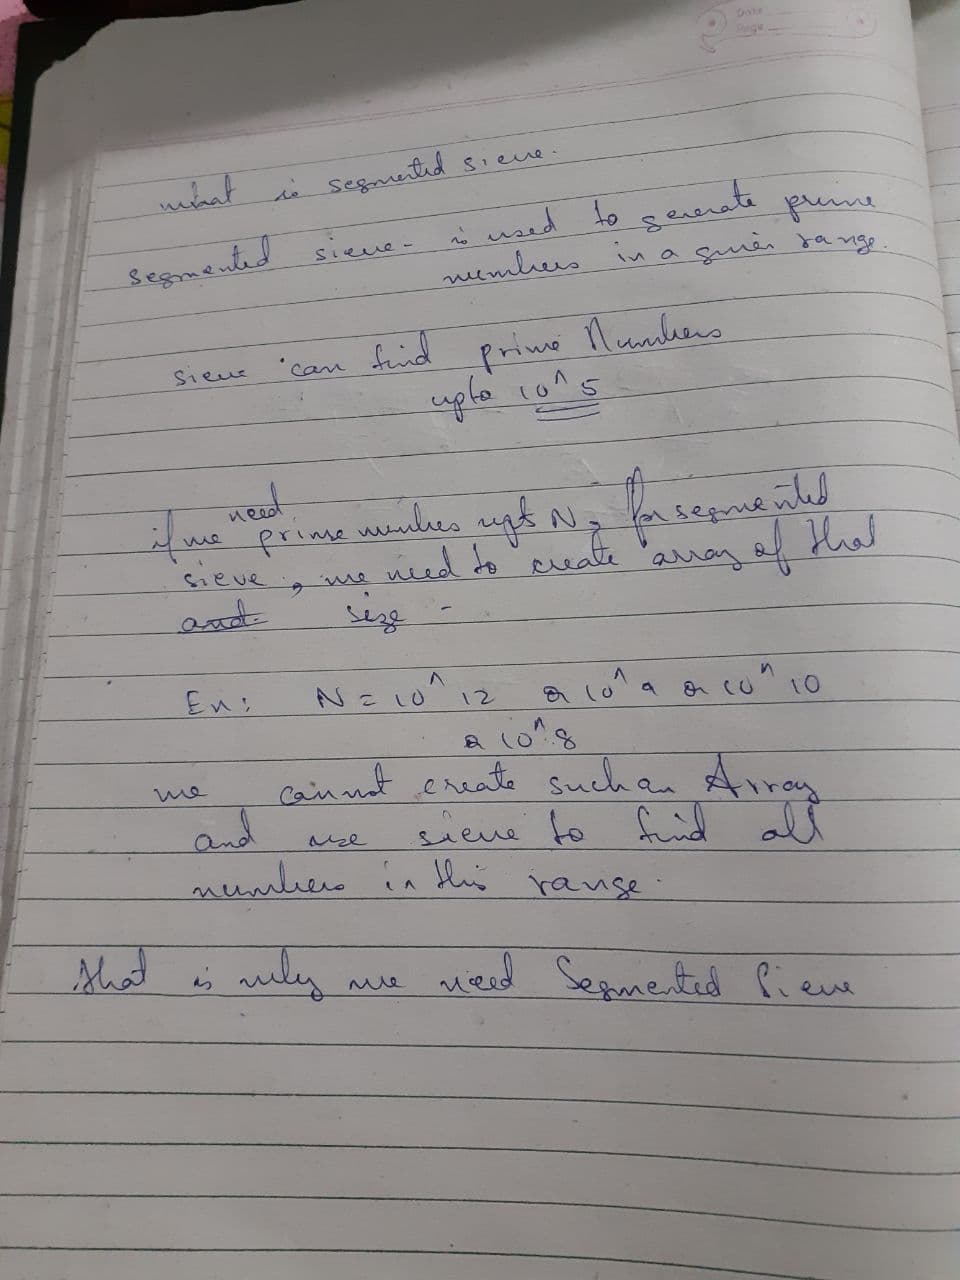 Date
Page
what is segmented sieve.
segmented sieve - is used to generate prime
numbers in a given range.
sieve can find prime Numbers
upto 10^5
need
if we prime numbers upto N, for segmented
sieve, we need to create array of that
and size -
Ex: N = 10^12 or 10^9 or 10^10
or 10^8
we cannot create such an Array
and use sieve to find all
numbers in this range.
that is why we need Segmented Sieve